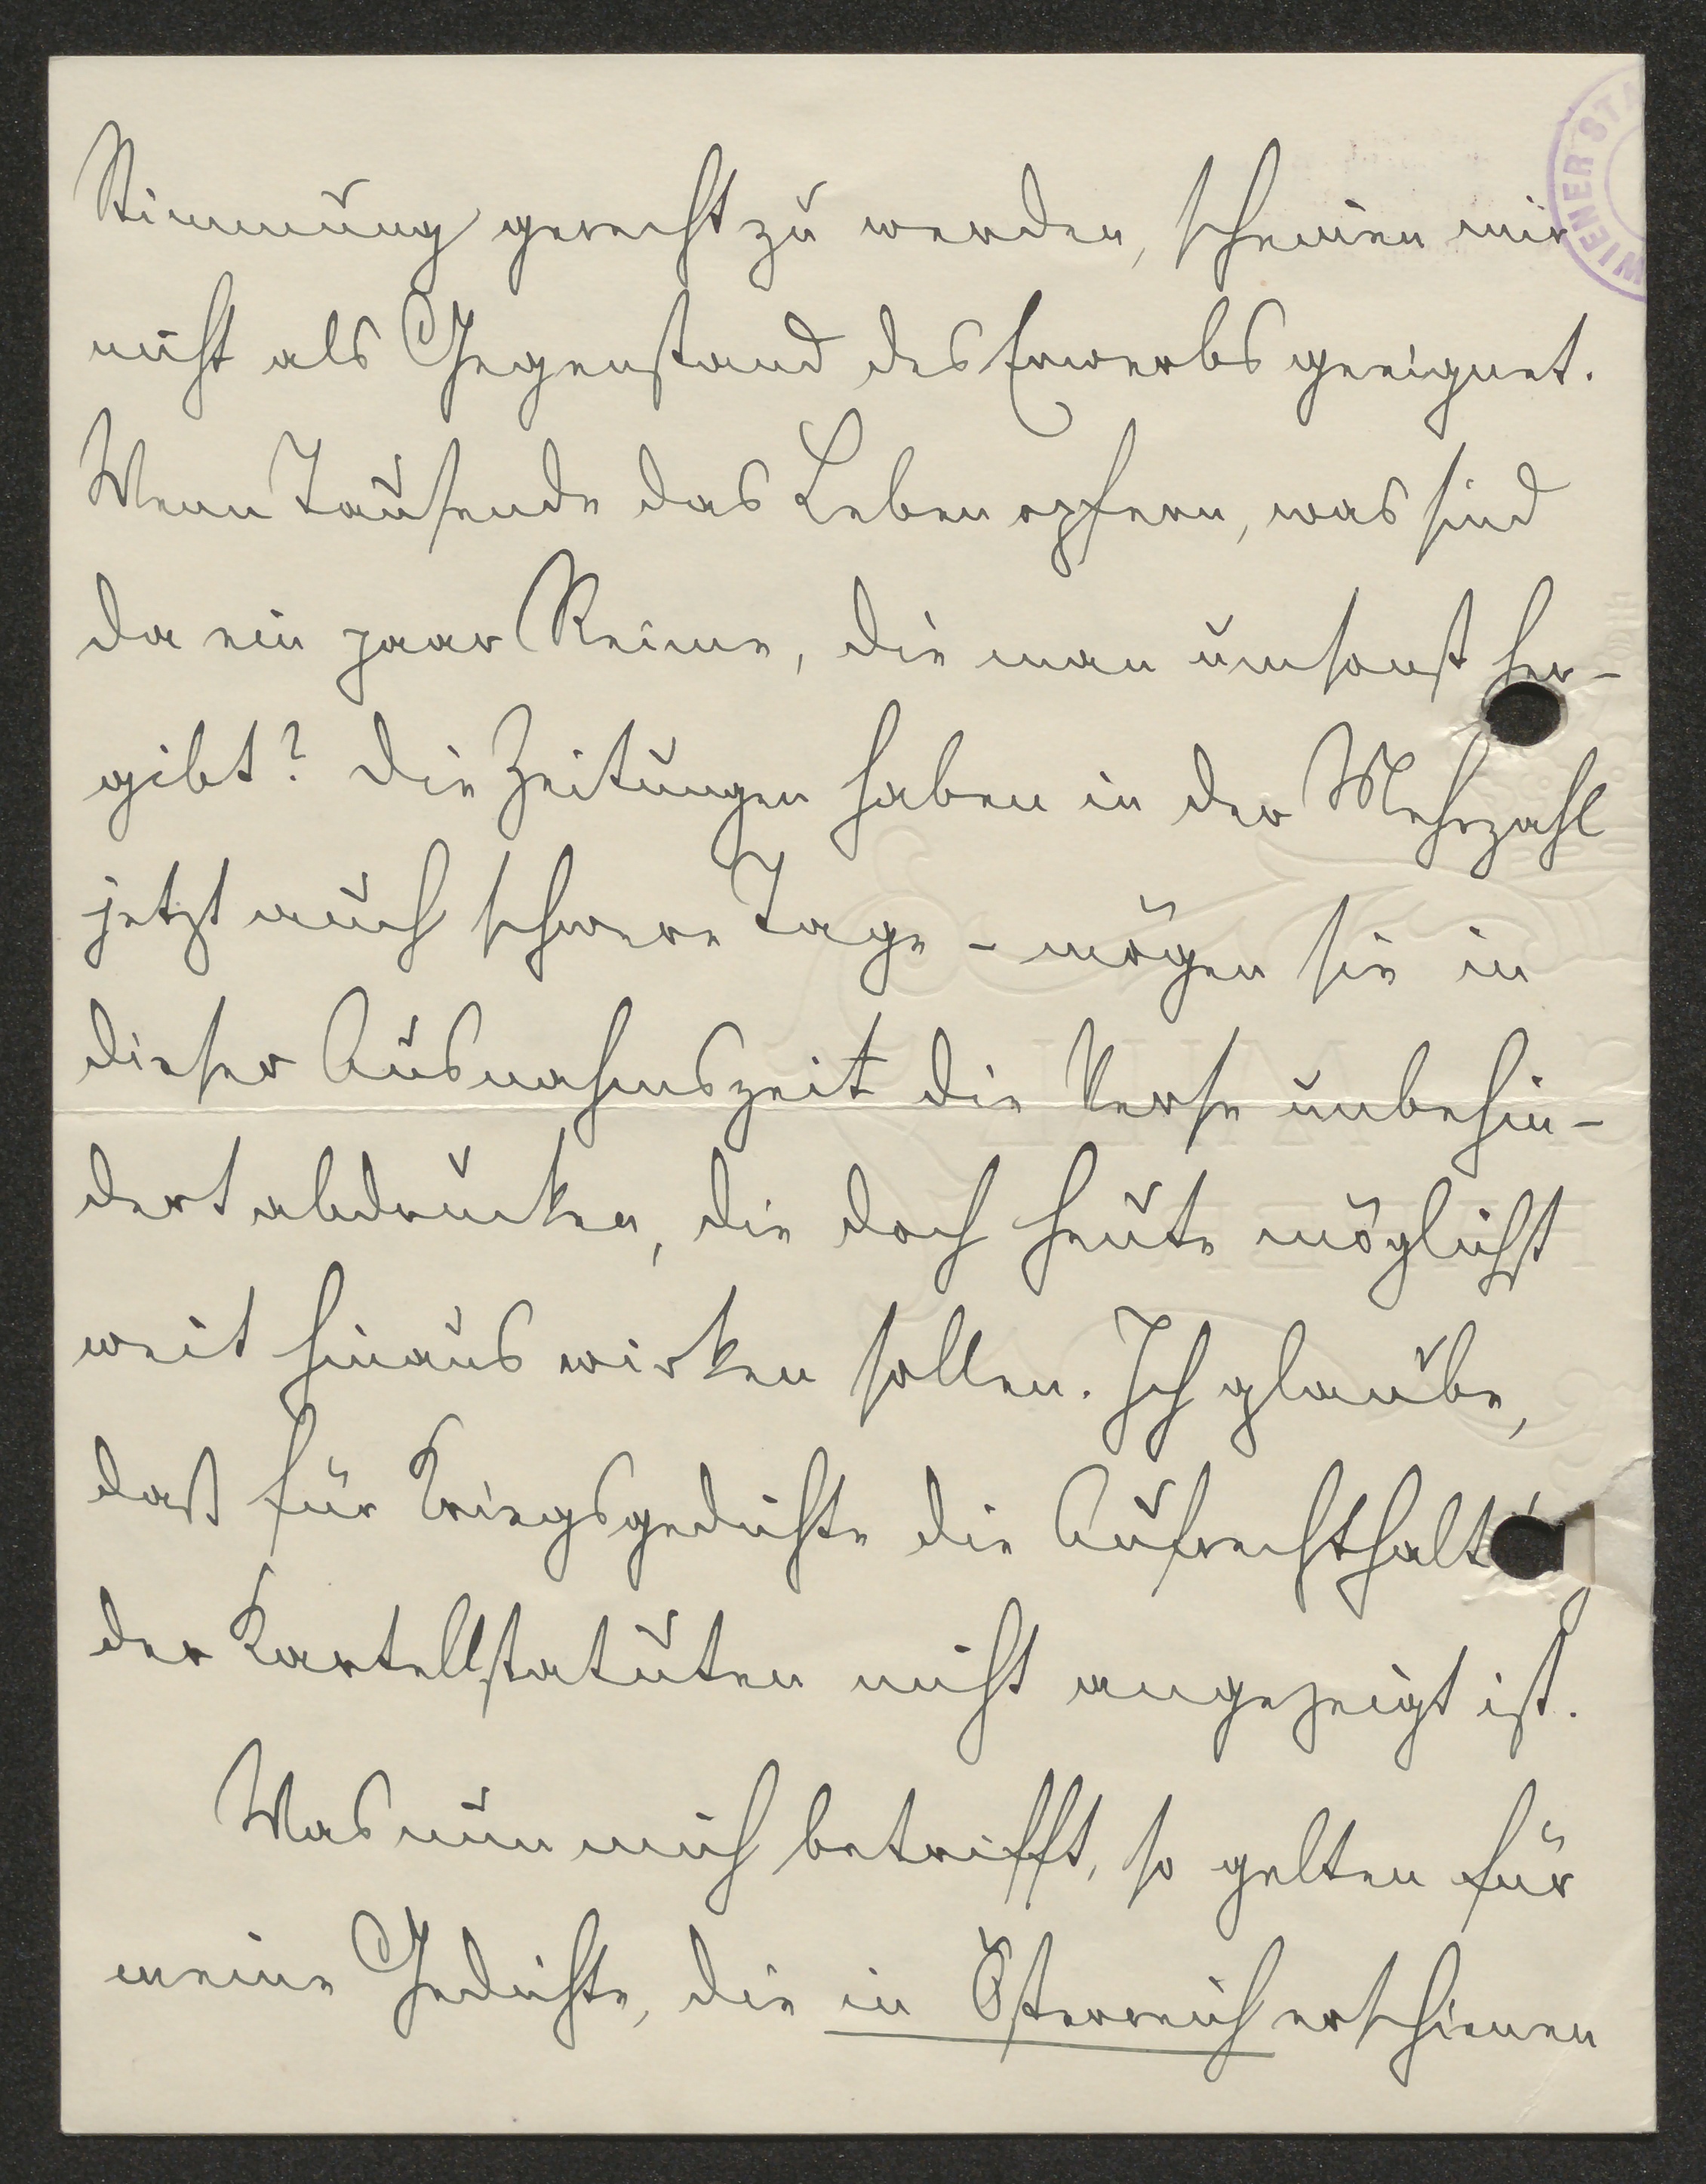 Stimmung gerecht zu werden, scheinen mir
nicht als Gegenstand des Erwerbs geeignet.
Wenn Tausende das Leben opfern, was sind
da ein paar Reime, die man umsonst her-
gibt? Die Zeitungen haben in der Mehrzahl
jetzt auch schwere Tage – mögen sie in
dieser Ausnahmszeit die Verse unbehin-
dert abdrucken, die doch heute möglichst
weit hinaus wirken sollen. Ich glaube,
daß für Kriegsgedichte die Aufrechthalt
der Kartellstatuten nicht angezeigt ist.
Was nun mich betrifft, so gelten für
meine Gedichte, die in Österreich erschienen
WIENER STA